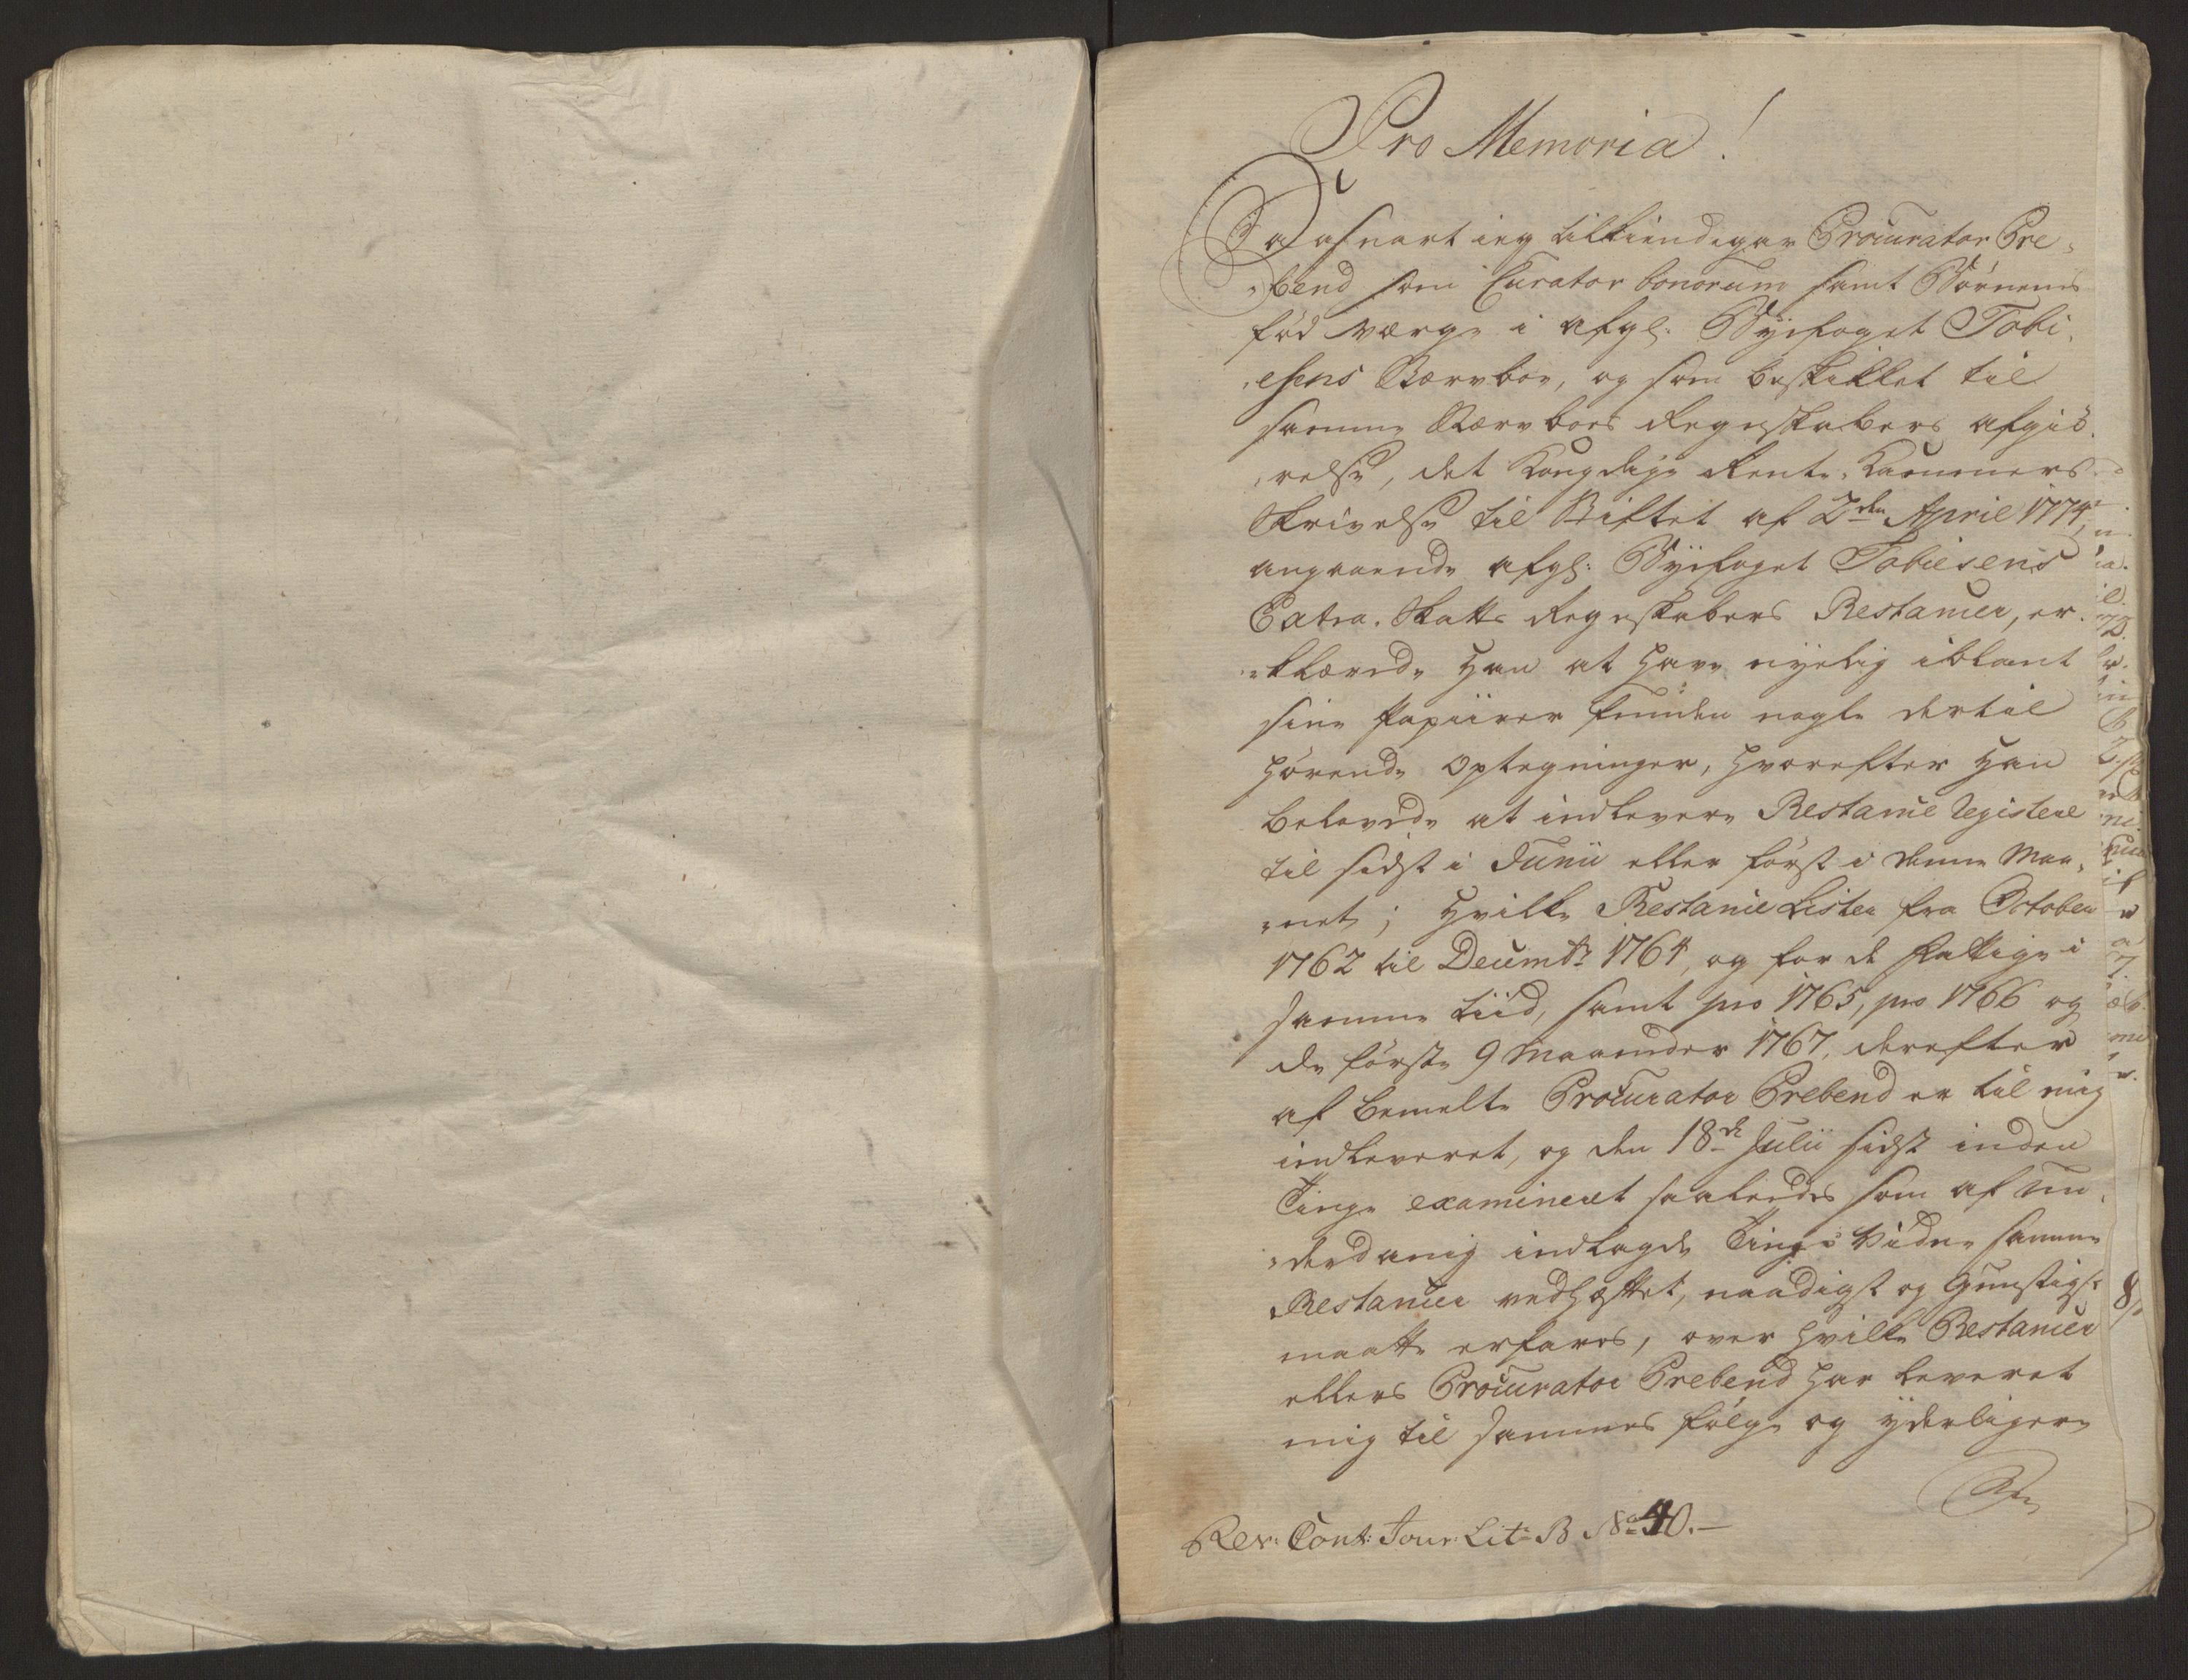 Pro Memoria!
Saasnart ieg tilkiendegav Procurator Pre-
-bend som Curator bonorum samt Børnenes
fød Værge i afgl: Byefoget Tobi-
-esens Stervboe, og som beskikket til
samme Stervboes Regnskabers afgiö-
-relse, det Kongelige Rente-Kammers
Skrivelse til Stiftet af 2den April 1774,
angaaende afgl: Byefoget Tobiesens
Extra-Skatts Regnskabers Restancer, er-
-klærede han at have nyelig iblant
sine Papiirer funden nogle dertil
hørende Optegninger, hvorefter han
belovede at indlevere Restance Registere
til sidst i Junii eller først i denne Maa-
-net; hvilke Restance Lister fra October
1762 til Decembr 1764, og for de fattige i
samme tiid, samt pro 1765, pro 1766 og
de første 9 Maaneder 1767, derefter
af bemelte Procurator Prebend er til mig
indleveret, og den 18de Julii sidst inden
Tinge examineret saaledes som af un-
-derdanig indlagde Tings Vidne samme
Restancer vedhæftet, naadigst og Gunstigst
maatte erfares, over hvilke Restancer
ellers Procurator Prebend har leveret
mig til sammes følge og yderligere
Rev: Cont: Jour: Lit: B No 40.-